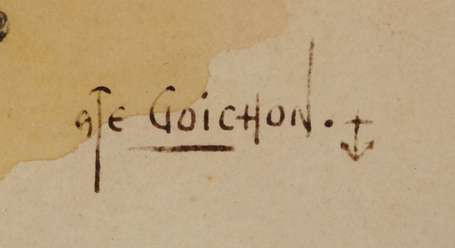 gste GOICHON.